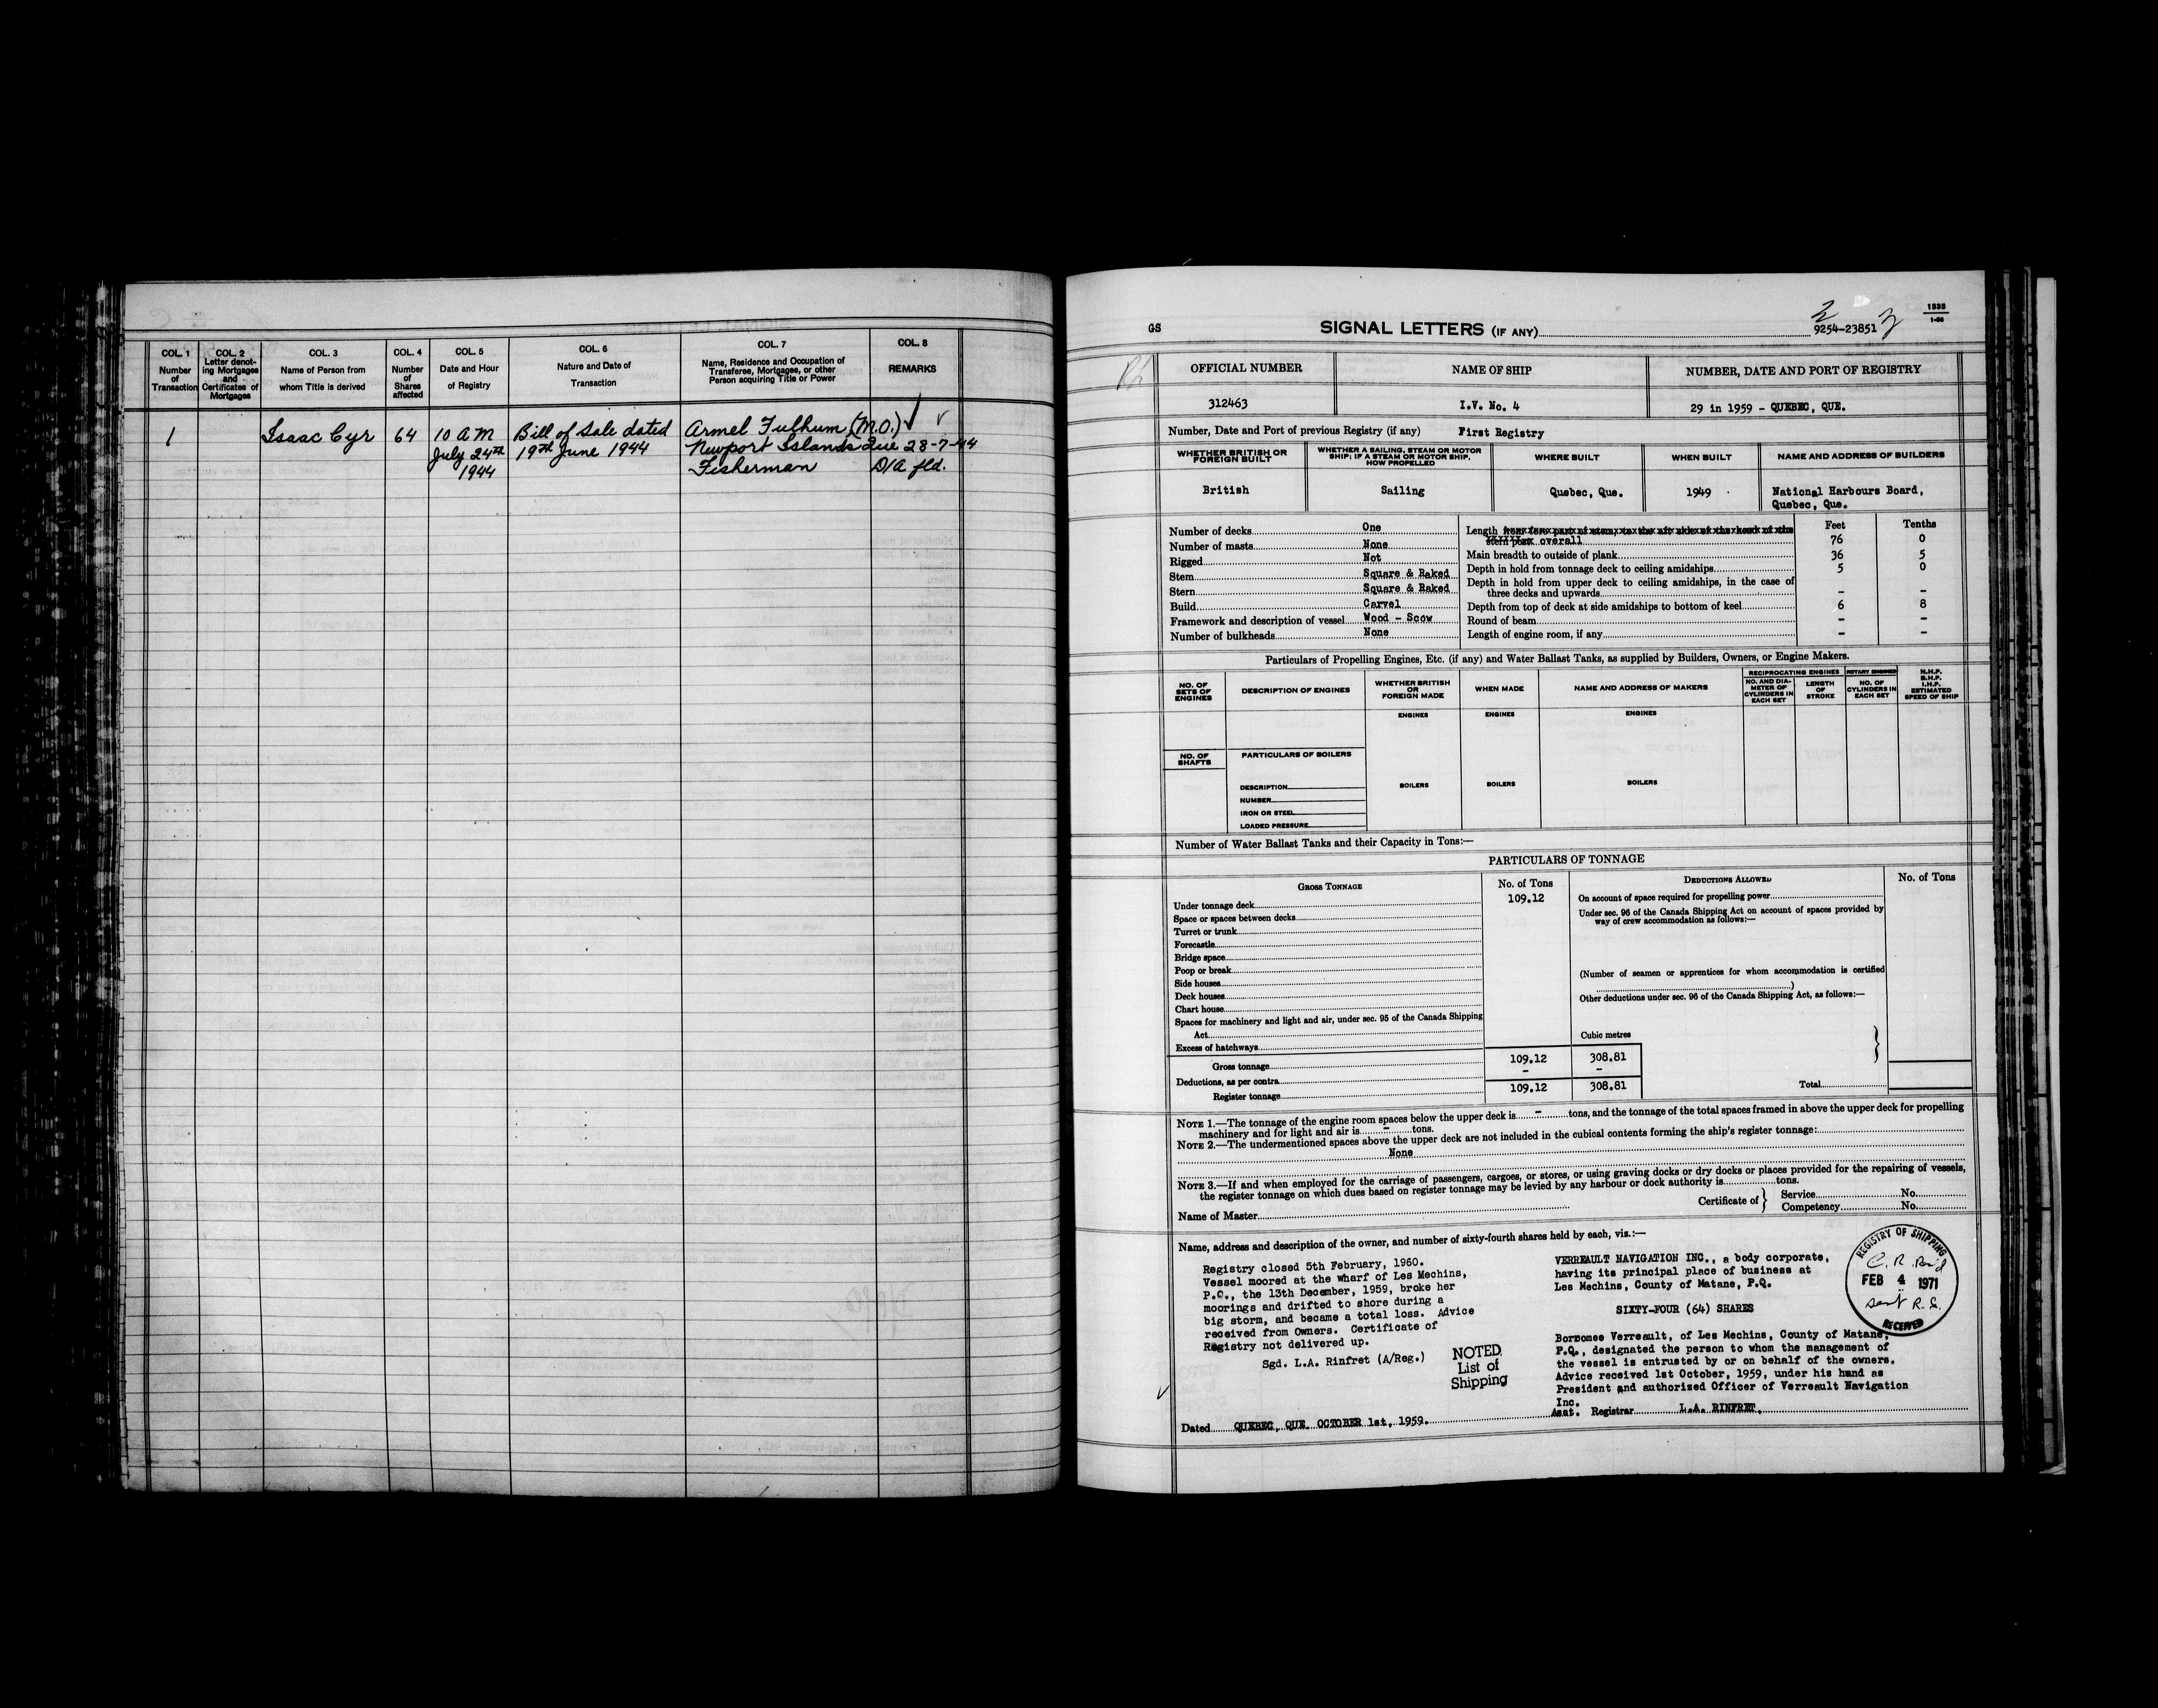 COL. 1
Number
of
Transaction
COL. 2
Letter denot-
ing Mortgages
and
Certificates of
Mortgages
COL. 3
Name of Person from
whom Title is derived
COL. 4
Number
of
Shares
affected
COL. 5
Date and Hour
of Registry
COL. 6
Nature and Date of
Transaction
COL. 7
Name, Residence and Occupation of
Transferee, Mortgagee, or other
Person acquiring Title or Power
COL. 8
REMARKS
1
Isaac Cyr
64
10 A M
July 24th
1944
Bill of Sale dated
19th June 1944
Armel Fulhum (M.O.)
Newport Islands Que
Fisherman
28-7-44
D/A fld.
GS
SIGNAL LETTERS (IF ANY)
2
9254-23851
1535
1-56
OFFICIAL NUMBER
NAME OF SHIP
NUMBER, DATE AND PORT OF REGISTRY
312463
I.V. No. 4
29 in 1959 - QUEBEC, QUE.
Number, Date and Port of previous Registry (if any) First Registry
WHETHER BRITISH OR
FOREIGN BUILT
WHETHER A SAILING, STEAM OR MOTOR
SHIP; IF A STEAM OR MOTOR SHIP,
HOW PROPELLED
WHERE BUILT
WHEN BUILT
NAME AND ADDRESS OF BUILDERS
British
Sailing
Quebec, Que.
1949
National Harbours Board,
Quebec, Que.
Number of decks One
Number of masts None
Rigged Not
Stem Square & Raked
Stern Square & Raked
Build Carvel
Framework and description of vessel Wood - Scow
Number of bulkheads None
Feet Tenths
Length from fore part of stem, to the aft side of the head of the
stern post overall 76 0
Main breadth to outside of plank 36 5
Depth in hold from tonnage deck to ceiling amidships 5 0
Depth in hold from upper deck to ceiling amidships, in the case of
three decks and upwards - -
Depth from top of deck at side amidships to bottom of keel 6 8
Round of beam - -
Length of engine room, if any - -
Particulars of Propelling Engines, Etc. (if any) and Water Ballast Tanks, as supplied by Builders, Owners, or Engine Makers.
NO. OF
SETS OF
ENGINES
DESCRIPTION OF ENGINES
WHETHER BRITISH
OR
FOREIGN MADE
WHEN MADE
NAME AND ADDRESS OF MAKERS
RECIPROCATING ENGINES
NO. AND DIA-
METER OF
CYLINDERS IN
EACH SET
LENGTH
OF
STROKE
ROTARY ENGINES
NO. OF
CYLINDERS IN
EACH SET
N.H.P.
B.H.P.
I.H.P.
ESTIMATED
SPEED OF SHIP
ENGINES
ENGINES
ENGINES
NO. OF
SHAFTS
PARTICULARS OF BOILERS
DESCRIPTION
NUMBER
IRON OR STEEL
LOADED PRESSURE
BOILERS
BOILERS
BOILERS
Number of Water Ballast Tanks and their Capacity in Tons:—
PARTICULARS OF TONNAGE
GROSS TONNAGE
No. of Tons
DEDUCTIONS ALLOWED
No. of Tons
Under tonnage deck 109.12
Space or spaces between decks
Turret or trunk
Forecastle
Bridge space
Poop or break
Side houses
Deck houses
Chart house
Spaces for machinery and light and air, under sec. 95 of the Canada Shipping
Act
Excess of hatchways
Cubic metres
Gross tonnage 109.12 308.81
Deductions, as per contra - -
Register tonnage 109.12 308.81
On account of space required for propelling power
Under sec. 96 of the Canada Shipping Act on account of spaces provided by
way of crew accommodation as follows:—
(Number of seamen or apprentices for whom accommodation is certified
)
Other deductions under sec. 96 of the Canada Shipping Act, as follows:—
Total
NOTE 1.—The tonnage of the engine room spaces below the upper deck is - tons, and the tonnage of the total spaces framed in above the upper deck for propelling
machinery and for light and air is - tons.
NOTE 2.—The undermentioned spaces above the upper deck are not included in the cubical contents forming the ship's register tonnage:
None
NOTE 3.—If and when employed for the carriage of passengers, cargoes, or stores, or using graving docks or dry docks or places provided for the repairing of vessels,
the register tonnage on which dues based on register tonnage may be levied by any harbour or dock authority is tons.
Name of Master
Certificate of
Service No.
Competency No.
Name, address and description of the owner, and number of sixty-fourth shares held by each, viz.:—
Registry closed 5th February, 1960.
Vessel moored at the wharf of Les Mechins,
P.Q., the 13th December, 1959, broke her
moorings and drifted to shore during a
big storm, and became a total loss. Advice
received from Owners. Certificate of
Registry not delivered up.
Sgd. L.A. Rinfret (A/Reg.)
NOTED
List of
Shipping
VERREAULT NAVIGATION INC., a body corporate,
having its principal place of business at
Les Mechins, County of Matane, P.Q.
SIXTY-FOUR (64) SHARES
Borromee Verreault, of Les Mechins, County of Matane,
P.Q., designated the person to whom the management of
the vessel is entrusted by or on behalf of the owners.
Advice received 1st October, 1959, under his hand as
President and authorized Officer of Verreault Navigation
Inc.
REGISTRY OF SHIPPING
C. R. Rec'd
FEB 4 1971
sent R. G.
RECEIVED
Dated QUEBEC, QUE. OCTOBER 1st, 1959.
Asst. Registrar L.A. RINFRET.